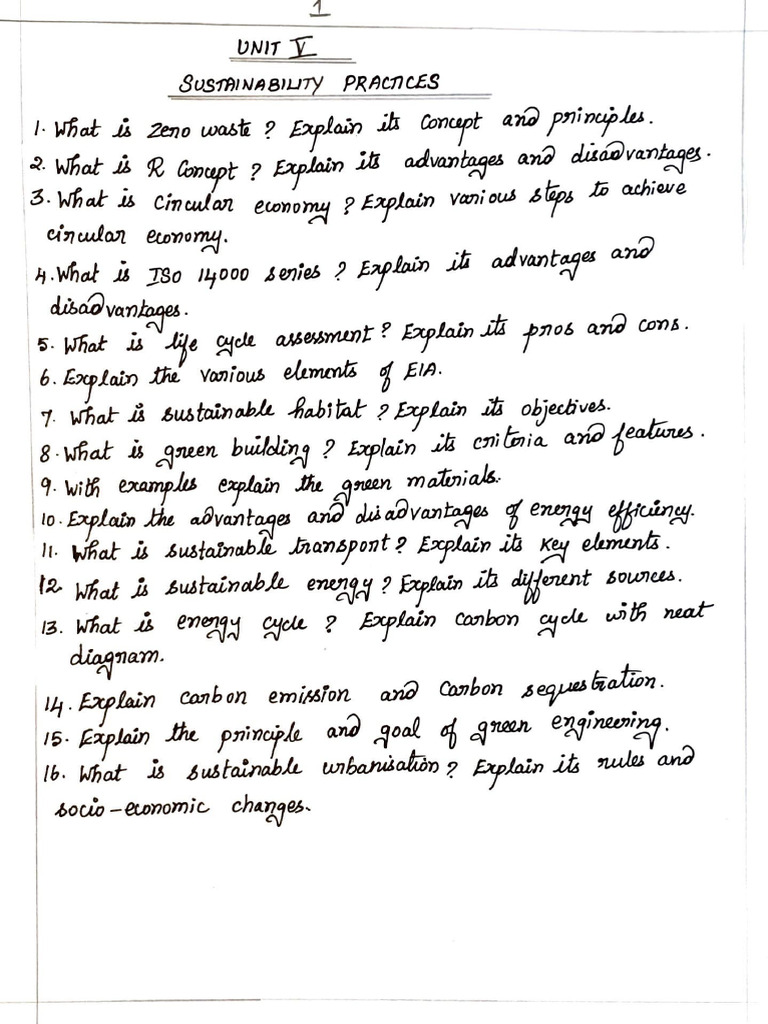 1
UNIT V
SUSTAINABILITY PRACTICES
1. What is Zero waste ? Explain its Concept and principles.
2. What is R Concept ? Explain its advantages and disadvantages.
3. What is Circular economy ? Explain various steps to achieve
circular economy.
4. What is ISO 14000 series ? Explain its advantages and
disadvantages.
5. What is life cycle assessment ? Explain its pros and cons.
6. Explain the various elements of EIA.
7. What is sustainable habitat ? Explain its objectives.
8. What is green building ? Explain its criteria and features.
9. With examples explain the green materials.
10. Explain the advantages and disadvantages of energy efficiency.
11. What is sustainable transport ? Explain its key elements.
12. What is sustainable energy ? Explain its different sources.
13. What is energy cycle ? Explain carbon cycle with neat
diagram.
14. Explain carbon emission and Carbon sequestration.
15. Explain the principle and goal of green engineering.
16. What is sustainable urbanisation ? Explain its rules and
socio-economic changes.